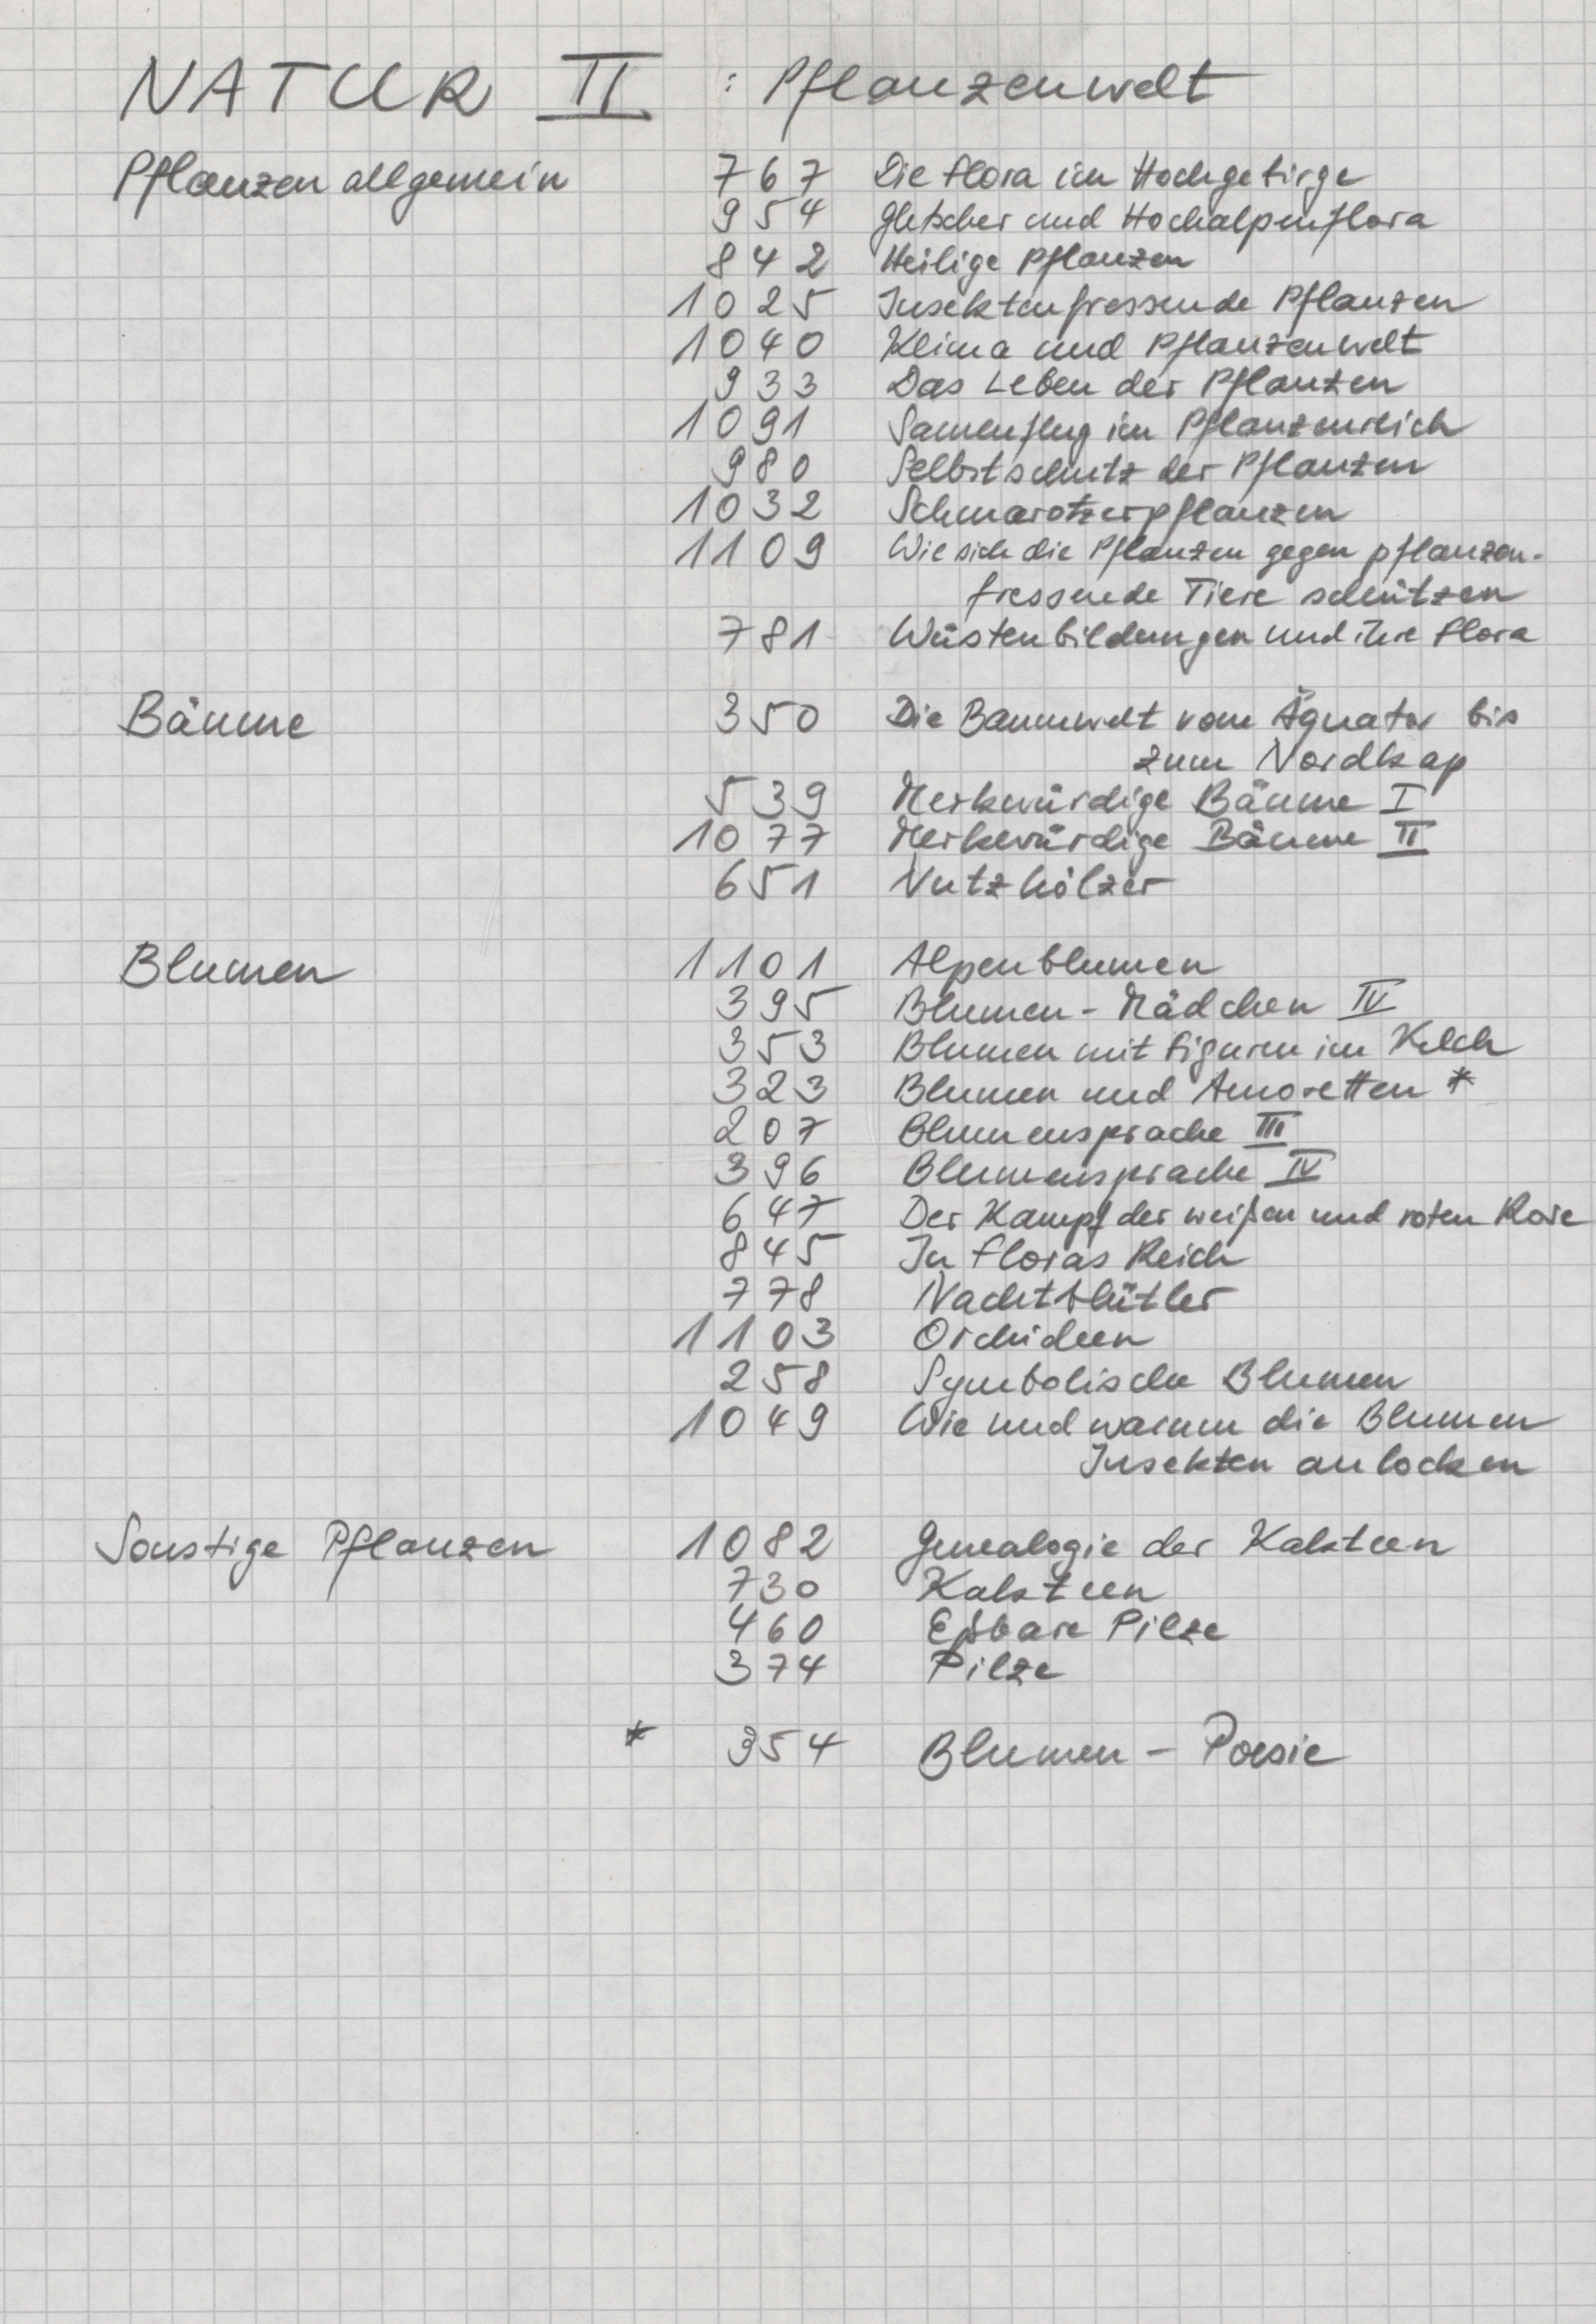 NATUR II : Pflanzenwelt
Pflanzen allgemein 767 Die Flora im Hochgebirge
954 Gletscher und Hochalpenflora
842 Heilige Pflanzen
1025 Insektenfressende Pflanzen
1040 Klima und Pflanzenwelt
933 Das Leben der Pflanzen
1091 Samenflug im Pflanzenreich
980 Selbstschutz der Pflanzen
1032 Schmarotzerpflanzen
1109 Wie sich die Pflanzen gegen pflanzen-
fressende Tiere schützen
781 Wüstenbildungen und ihre Flora
Bäume 350 Die Baumwelt vom Äquator bis
zum Nordkap
539 Merkwürdige Bäume I
1077 Merkwürdige Bäume II
651 Nutzhölzer
Blumen 1101 Alpenblumen
395 Blumen-Mädchen IV
353 Blumen mit Figuren im Kelch
323 Blumen und Amoretten *
207 Blumensprache III
396 Blumensprache IV
647 Der Kampf der weißen und roten Rose
845 In Floras Reich
778 Nachtblütler
1103 Orchideen
258 Symbolische Blumen
1049 Wie und warum die Blumen
Insekten anlocken
Sonstige Pflanzen 1082 Genealogie der Kakteen
730 Kakteen
460 Eßbare Pilze
374 Pilze
* 354 Blumen - Poesie